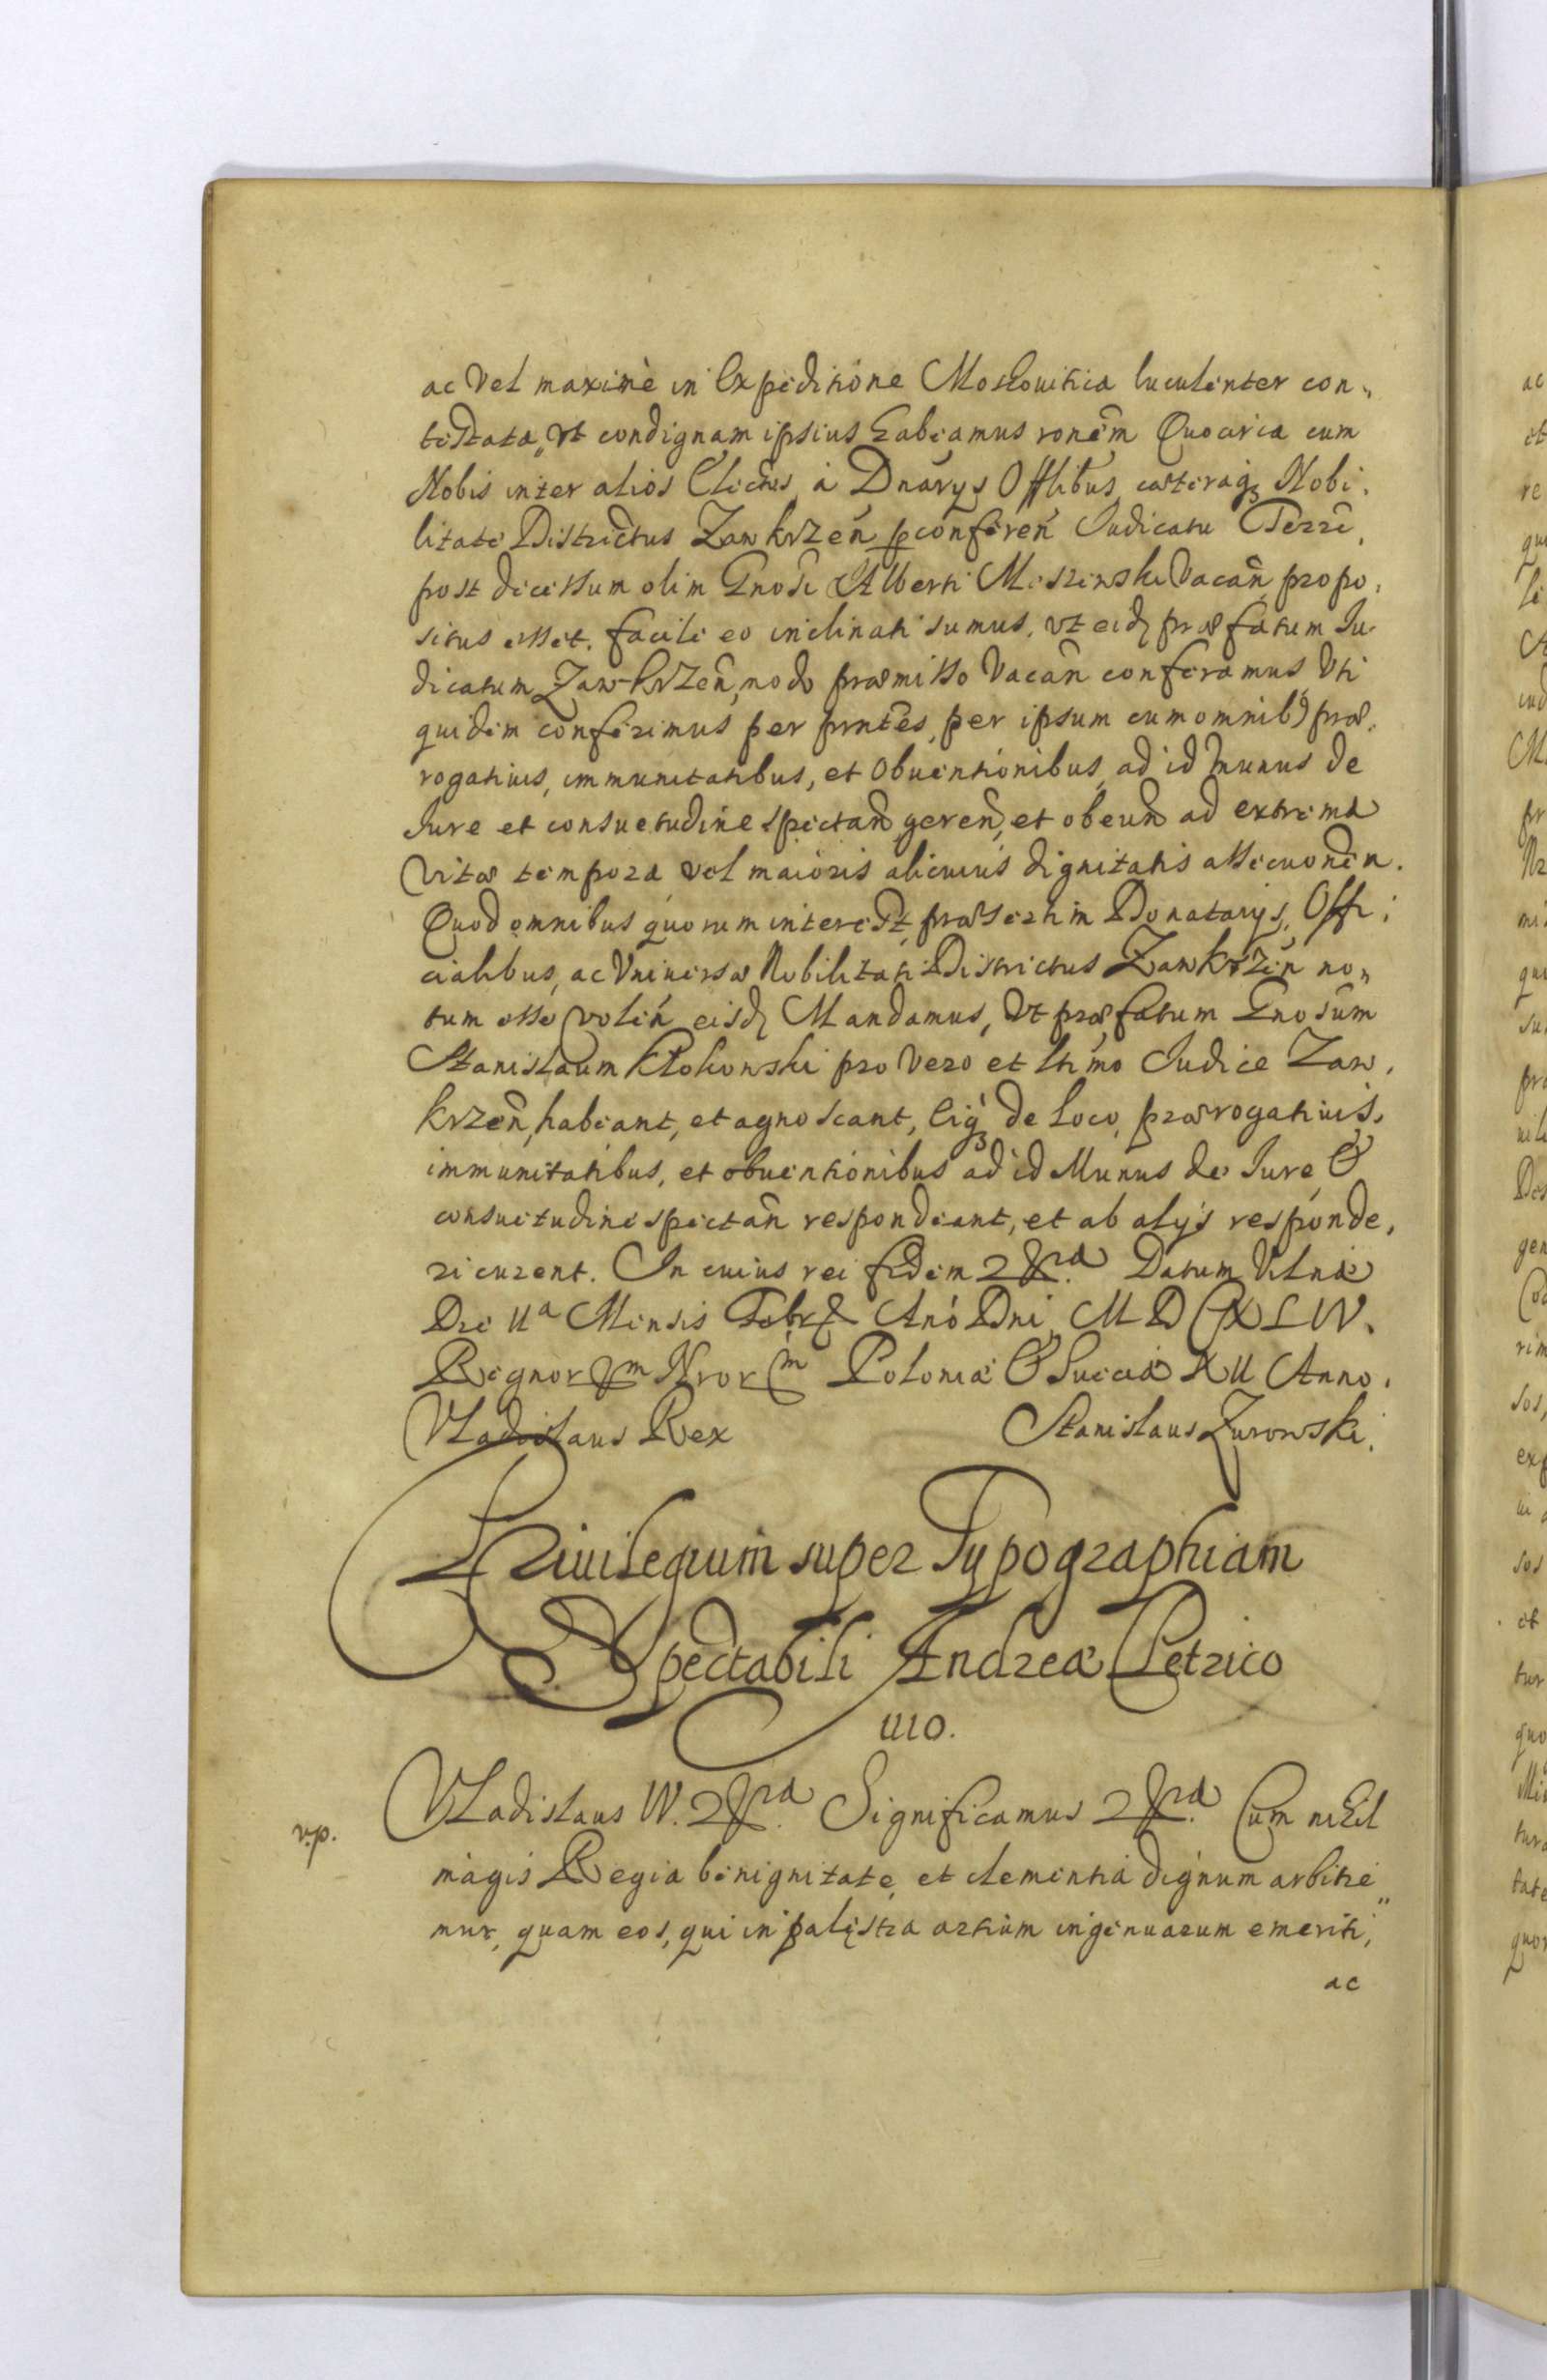 ac Vel maximè in Expeditione Moschouitica luculenter con„
testata, Vt condignam ipsius habeamus ronēm Quocirca cum
Nobis inter alios Electus à Dnarÿs Offlibus, cæteraq₃ Nobi,
litate Districtus Zawkrzeń p confereń Judicatu Terre,
post decessum olim Gnosi Alberti Vacań propo,
situs esset. facile eo inclinati sumus, vt eid præfatum Ju,
dicatum Zawkrzeń, modo præmisso Vacań conferamus Vti
quidem conferimus per pntes, per ipsum cum omnib9 præ,
rogatiuis, immunitatibus, et Obuentionibus, ad id munus de
Jure et consuetudine spectań, gereń, et obeuń ad extrema
Vitæ tempora vel maioris alicuius dignitatis assecuonem.
Quod omnibus quorum interest, præsertim Donatarys, Offi;
cialibus, ac Vniuersæ Nobilitati Districtus Zawkrzeń no„
tum esse voleń eisd Mandamus, Vt præfatum Gnosum
Stanislaum Klokowski pro Vero et ltimo Judice Zaw,
krzeń, habeant, et agnoscant, Eiq₃ de Loco, prærogatiuis,
immunitatibus, et obuentionibus ad id Munus de Jure &
consuetudine spectań respondeant, et ab alijs responde,
ri curent. In cuius rei fidem Datum Vilnæ
Die IIa Mensis Febr Ano Dni, M D CXLIV.
Regnorum Nrorum Poloniæ & Sueciæ XII Anno.
Vladislaus Rex Stanislaus Zurowski.
Priuilegium super Typographiam
Spectabili Andreæ Petrico
uio.
v.p.
Vladislaus IV. Significamus Cum nihil
magis Regia benignitate, et clementia dignum arbitre„
mur, quam eos, qui in palęstra artium ingenuarum emeriti,
ac